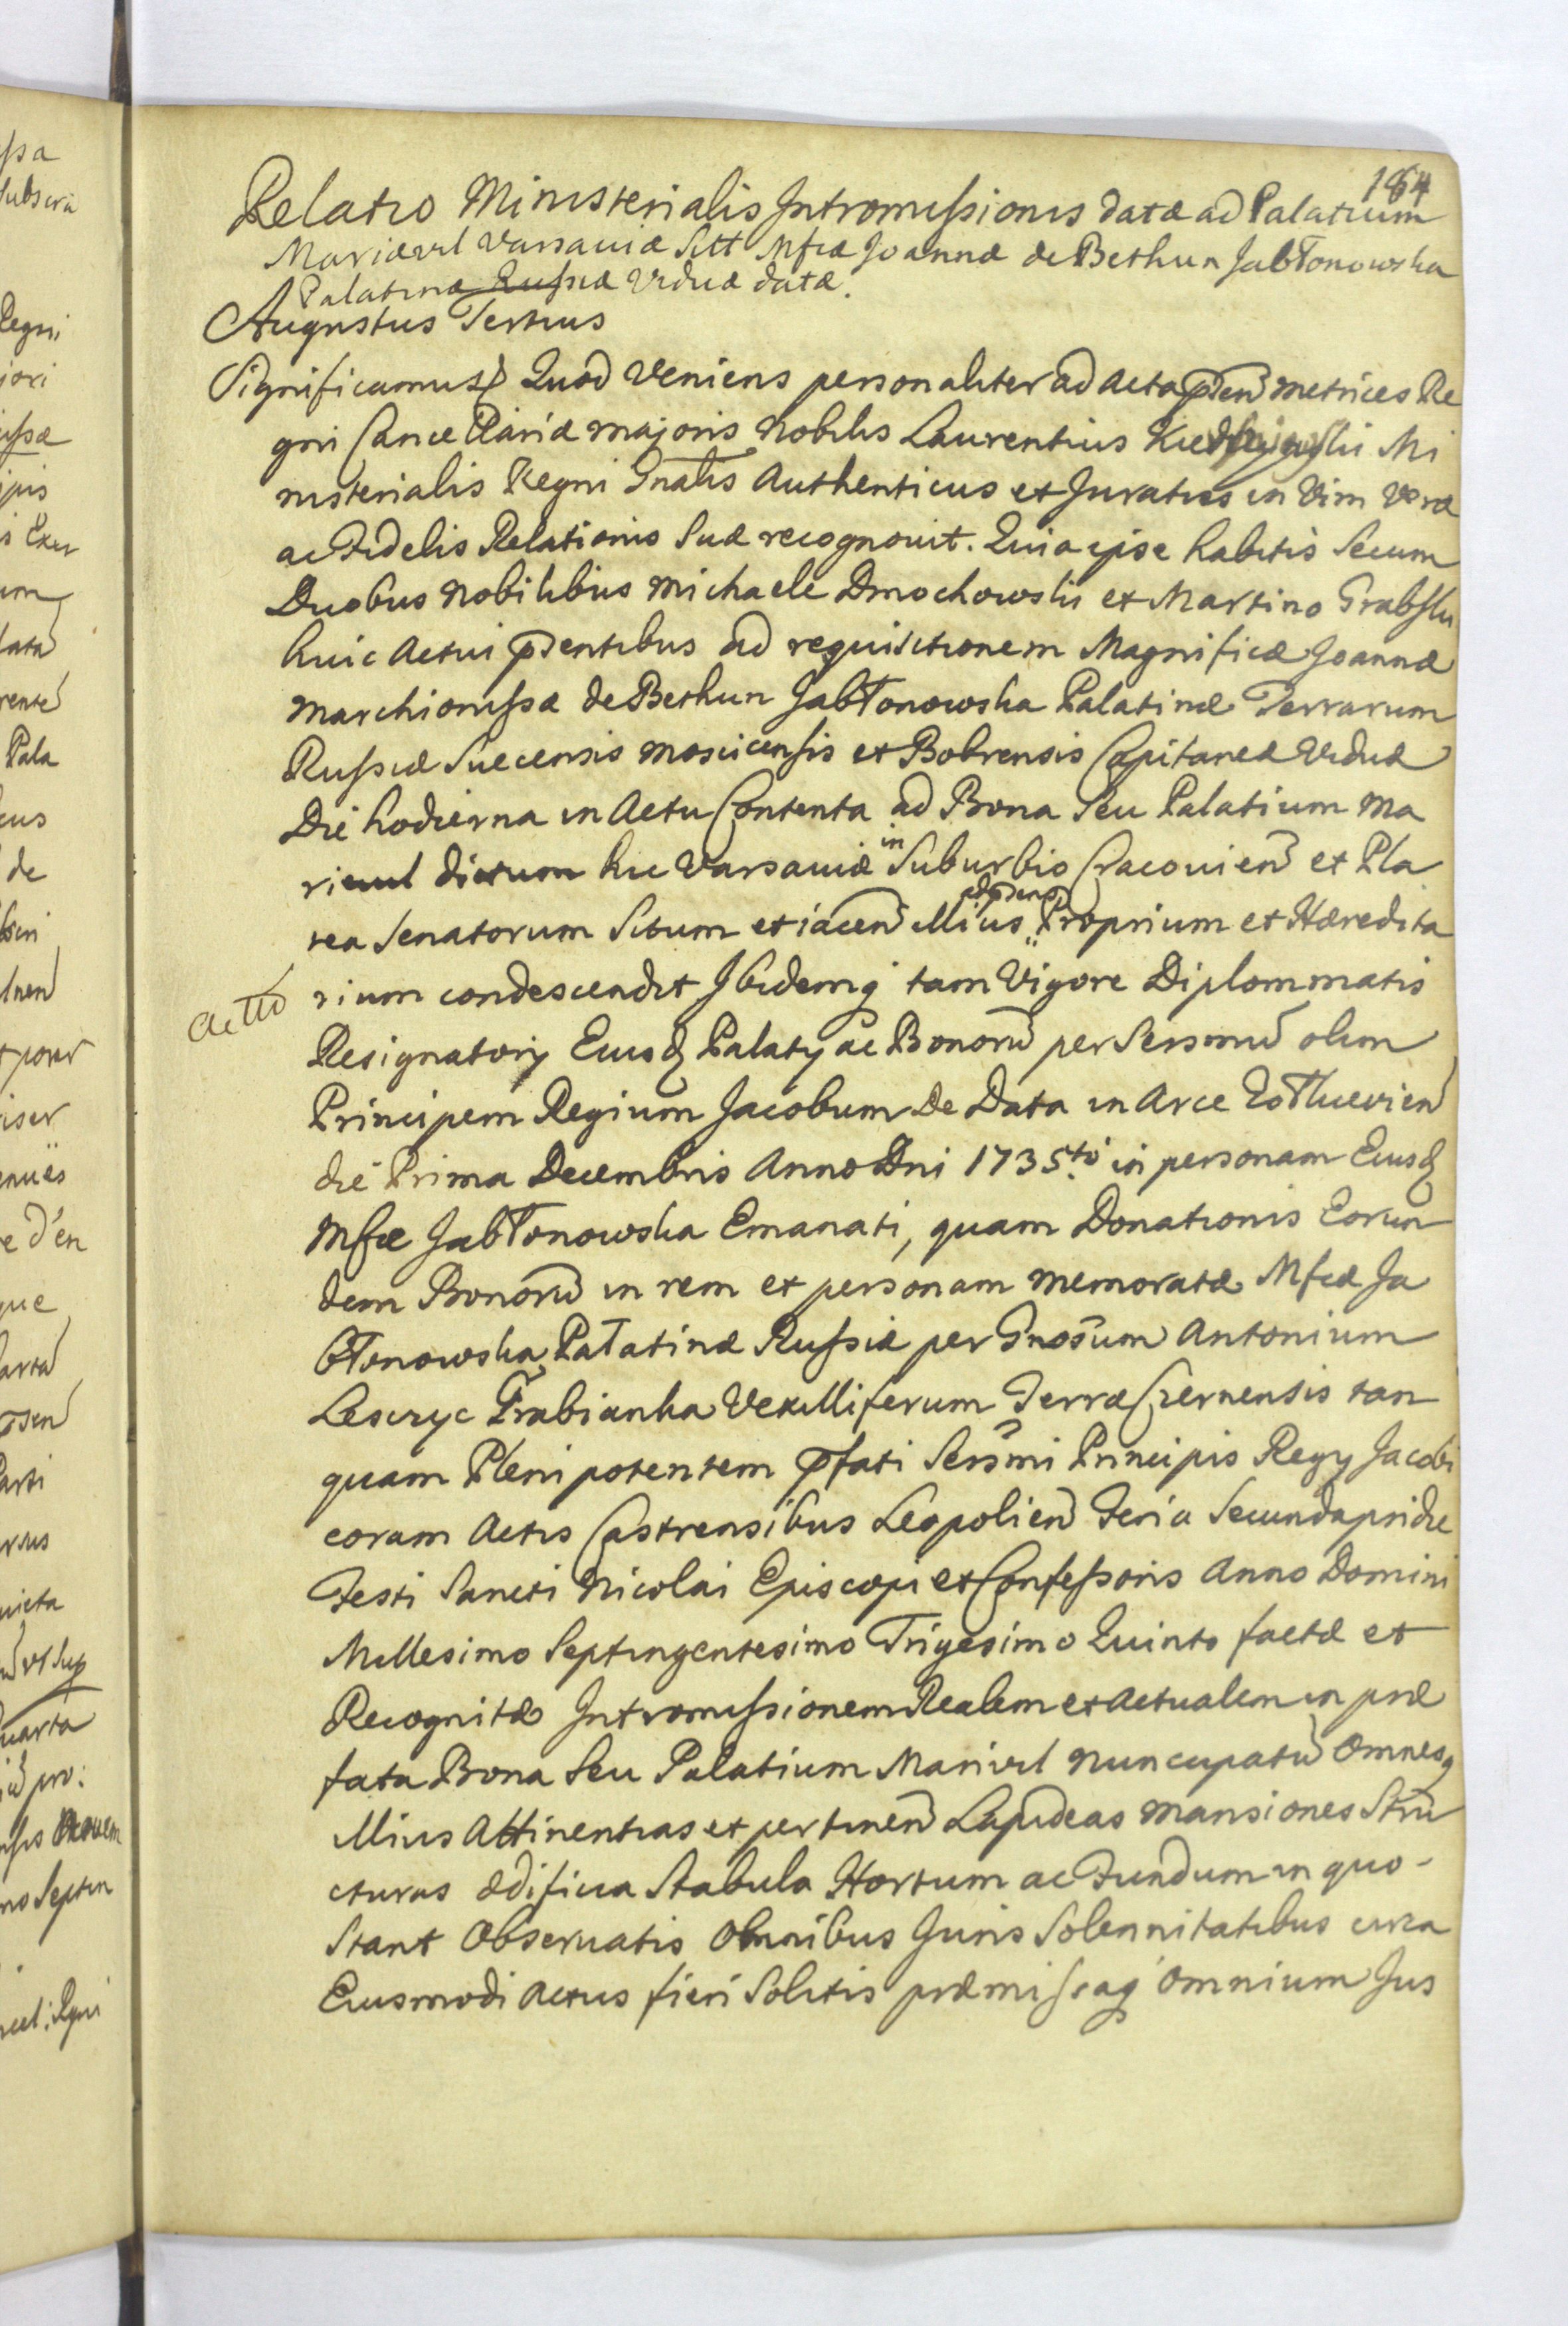 164
Relatio Ministerialis Intromissionis datæ ad Palatium
Marievil Varsaviæ Sitt Mfcæ Joannæ de Bethun Jabłonowska
Palatinæ Russiæ Viduæ datæ.
Augustus Tertius
Significamus Quod Veniens personaliter ad Acta pñtn̄ Metrices Re
gni Cancellariæ majoris Nobilis Laurentius Mi
nisterialis Regni Gnalis Authenticus et Juratus in Vim Veræ
ac Fidelis Relationis Suæ recognovit. Quia ipse habitis Secum
Duobus Nobilibus Michaele Dmochowski et Martino Grabski
huic Actui pñtentibus ad requisitionem Magnificæ Joannæ
Marchionissæ de Bethun Jabłonowska Palatinæ Terrarum
Russiæ Suecensis Moscicensis et Bobrensis Capitaneæ Viduæ
Die hodierna in Actu Contenta ad Bona Seu Palatium Ma
rievil dictum hic Varsaviæ in Suburbio Cracovien̄ et Pla
tea Senatorum Situm et iacen̄ Illius adpsens Proprium et Hæredita
rium condescendit Ibidemq tam Vigore Diplommatis
actto
Resignatorÿ Eiusd Palatÿ ac Bonorū per Sersmū olim
Principem Regium Jacobum De Data in Arce Zołkievien̄
die Prima Decembris Anno Dni 1735to in personam Eiusd
Mfcæ Jabłonowska Emanati, quam Donationis Eorun
dem Bonorū in rem et personam memoratæ Mfcæ Ja
błonowska Palatinæ Russiæ per Gnosum Antonium
Lescryc Grabianka Vexilliferum Terræ Czernensis tan
quam Plenipotentem pfati Sersmi Principis Regÿ Jacobi
coram Actis Castrensibus Leopolien̄ Feria Secunda pridie
Festi Sancti Nicolai Episcopi et Confessoris Anno Domini
Millesimo Septingentesimo Trigesimo Quinto factæ et
Recognitæ Intromissionem Realem et Actualem in præ
fata Bona Seu Palatium Marivil Nuncupatū Omnesq
Illius Attinentias et pertinen̄ Lapideas Mansiones Stru
cturas ædificia Stabula Hortum ac Fundum in quo
Stant Observatis Omnibus Juris Solennitatibus circa
Eiusmodi Actus fieri Solitis præmissaq Omnium Jus